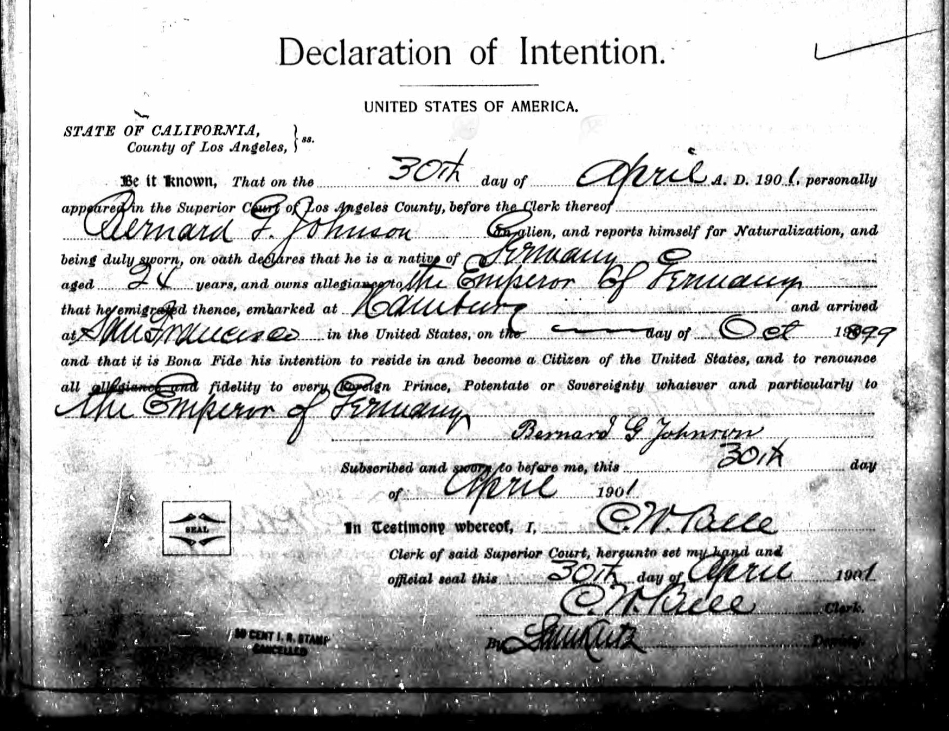 Declaration of Intention.
UNITED STATES OF AMERICA.
STATE OF CALIFORNIA,
County of Los Angeles, } ss.
Be it known, That on the 30th day of April A. D. 1901. personally
appeared in the Superior Court of Los Angeles County, before the Clerk thereof
Bernard G. Johnson an alien, and reports himself for Naturalization, and
being duly sworn, on oath declares that he is a native of Germany
aged 24 years, and owns allegiance to the Emperor of Germany
that he emigrated thence, embarked at Hamburg and arrived
at San Francisco in the United States, on the — day of Oct 1899
and that it is Bona Fide his intention to reside in and become a Citizen of the United States, and to renounce
all allegiance and fidelity to every Foreign Prince, Potentate or Sovereignty whatever and particularly to
the Emperor of Germany
Bernard G Johnson
Subscribed and sworn to before me, this 30th day
of April 1901
In Testimony whereof, I, C. W. Bell
Clerk of said Superior Court, hereunto set my hand and
official seal this 30th day of April 1901
SEAL
C. W. Bell Clerk.
50 CENT I. R. STAMP
CANCELLED
By Sam Kutz Deputy.